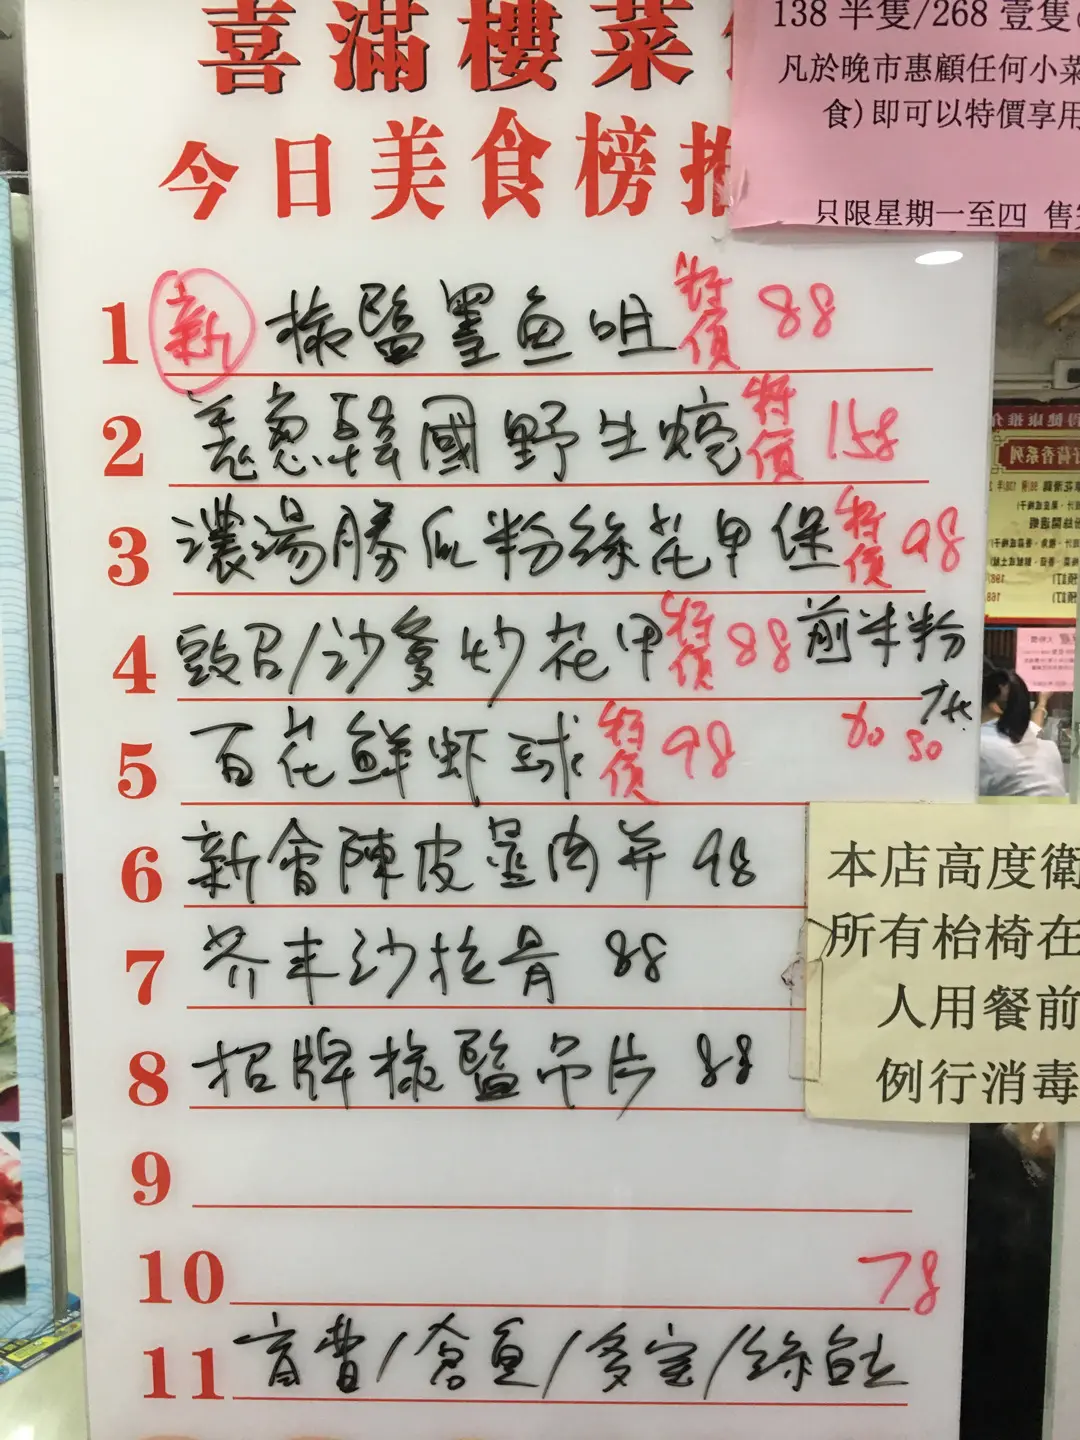 喜滿樓菜
今日美食榜推
138 半隻/268 壹隻
凡於晚市惠顧任何小菜
食)即可以特價享用
只限星期一至四 售
1 新 椒鹽墨魚咀 特價 88
2 羌蔥韓國野生蠔 特價 158
3 濃湯勝瓜粉絲花甲煲 特價 98
4 豉召/沙爹炒花甲 特價 88 煎米粉
5 百花鮮虾球 特價 98
6 新會陳皮蒸肉并 98
7 芥末沙拉骨 88
8 招牌椒鹽吊片 88
9
10 78
11 /倉魚/多宝/
本店高度衛
所有枱椅在
人用餐前
例行消毒